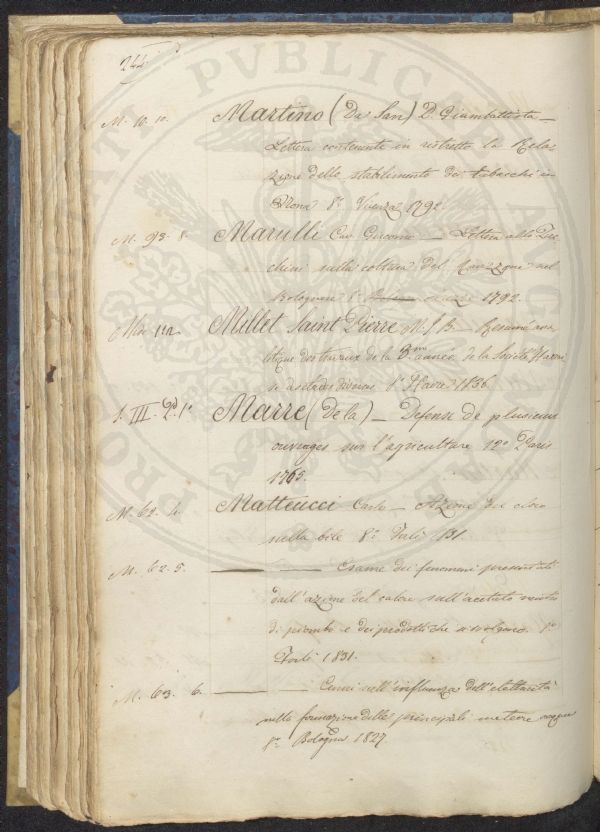 244
M. 10. 10. Martino (Da San) D. Giambattista —
Lettera contenente in ristretto la Rela
zione dello stabilimento dei tabacchi in
Nona 8° Vicenza 1792
M. 93. 8. Marulli Cav. Giacomo — Lettera allo Zec
chini sulla coltura del nel
Bolognese 8° 1792.
Millet Saint Pierre M. J. B. — Resumé ana
litique des travaux de la 3.me année de la Société Havrai
se d'etudes diverses 8° Havre 1836
III. 2d. 1° Marre (de la) — Defense de plusieurs
ouvrages sur l'agriculture 12° Paris
1765.
M. 62. 4. Matteucci Carlo — Azione del cloro
sulla bile 8° Forlì 1831.
M. 62. 5. — — Esame dei fenomeni presentati
dall'azione del calore sull'acetato neutro
di piombo e dei prodotti che si svolgono. 8°
Forlì 1831.
M. 63. 6. — Cenni sull'influenza dell'elettricità
nella formazione delle principali meteore
8° Bologna 1827.
PUBLICAE